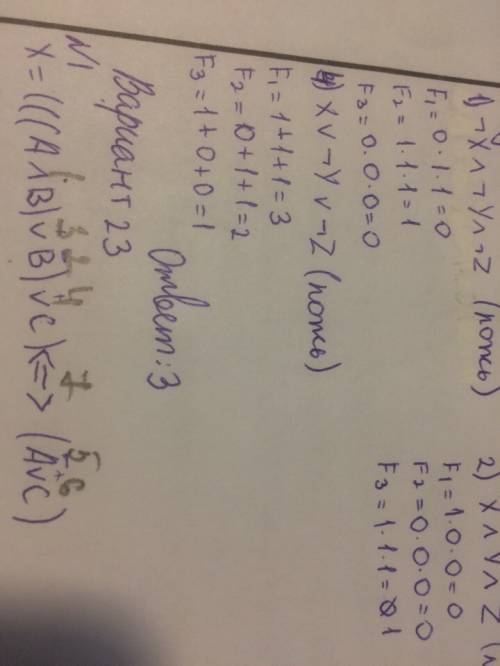 1) ¬X ∧ ¬Y ∧ ¬Z (ложь)
F₁ = 0·1·1 = 0
F₂ = 1·1·1 = 1
F₃ = 0·0·0 = 0
2) X ∧ Y ∧ Z
F₁ = 1·0·0 = 0
F₂ = 0·0·0 = 0
F₃ = 1·1·1 = 1
4) X ∨ ¬Y ∨ ¬Z (ложь)
F₁ = 1+1+1 = 3
F₂ = 0+1+1 = 2
F₃ = 1+0+0 = 1
Ответ: 3
Вариант 23
N1
X = (((A ∧ B) ∨ B) ∨ C) <=> (A ∨ C)